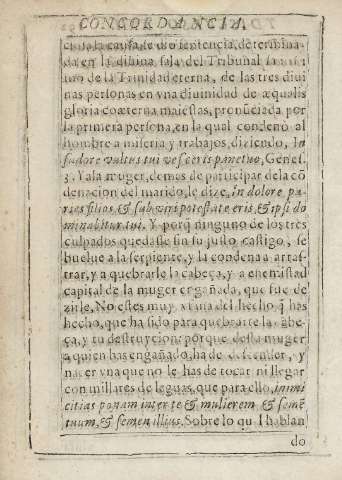 CONCORDANCIA.
da la causa, se dio sentencia, determina-
da en la diuina sala del Tribunal trini-
tino de la Trinidad eterna, de las tres diui
nas personas en vna diuinidad de æqualis
gloria coæterna maiestas, pronũciada por
la primera persona, en la qual condenò al
hombre a miseria y trabajos, diziendo, In
sudore vultus tui vesceris pane tuo, Genes.
3. Y a la muger, demas de participar de la cõ
denacion del marido, le dize, in dolore pa-
ries filios, & sub viri potestate eris, & ipse do
minabitur tui. Y porq̃ ninguno de los tres
culpados quedasse sin su justo castigo, se
buelue a la serpiente, y la condena a arras-
trar, y a quebrarle la cabeça, y a enemistad
capital de la muger engañada, que fue de-
zirle, No estes muy vfana del hecho q̃ has
hecho, que ha sido para quebrarte la cabe-
ça, y tu destruycion: porque dessa muger
a quien has engañado, ha de decender, y
nacer vna que no le has de tocar ni llegar
con millares de leguas, que para ello, inimi
citias ponam inter te & mulierem, & semẽ
tuum, & semen illius. Sobre lo qual hablan
do